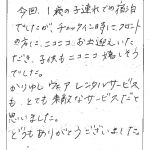 今回、1歳の子連れでの宿泊
でしたが、チェックイン時にフロント
の方に、ニコニコ、お出迎えいた
だき、子供もニコニコ嬉しそう
でした。
かりゆしウェアレンタルサービス
も、とても素敵なサービスだと
思いました。
どうもありがとうございました。